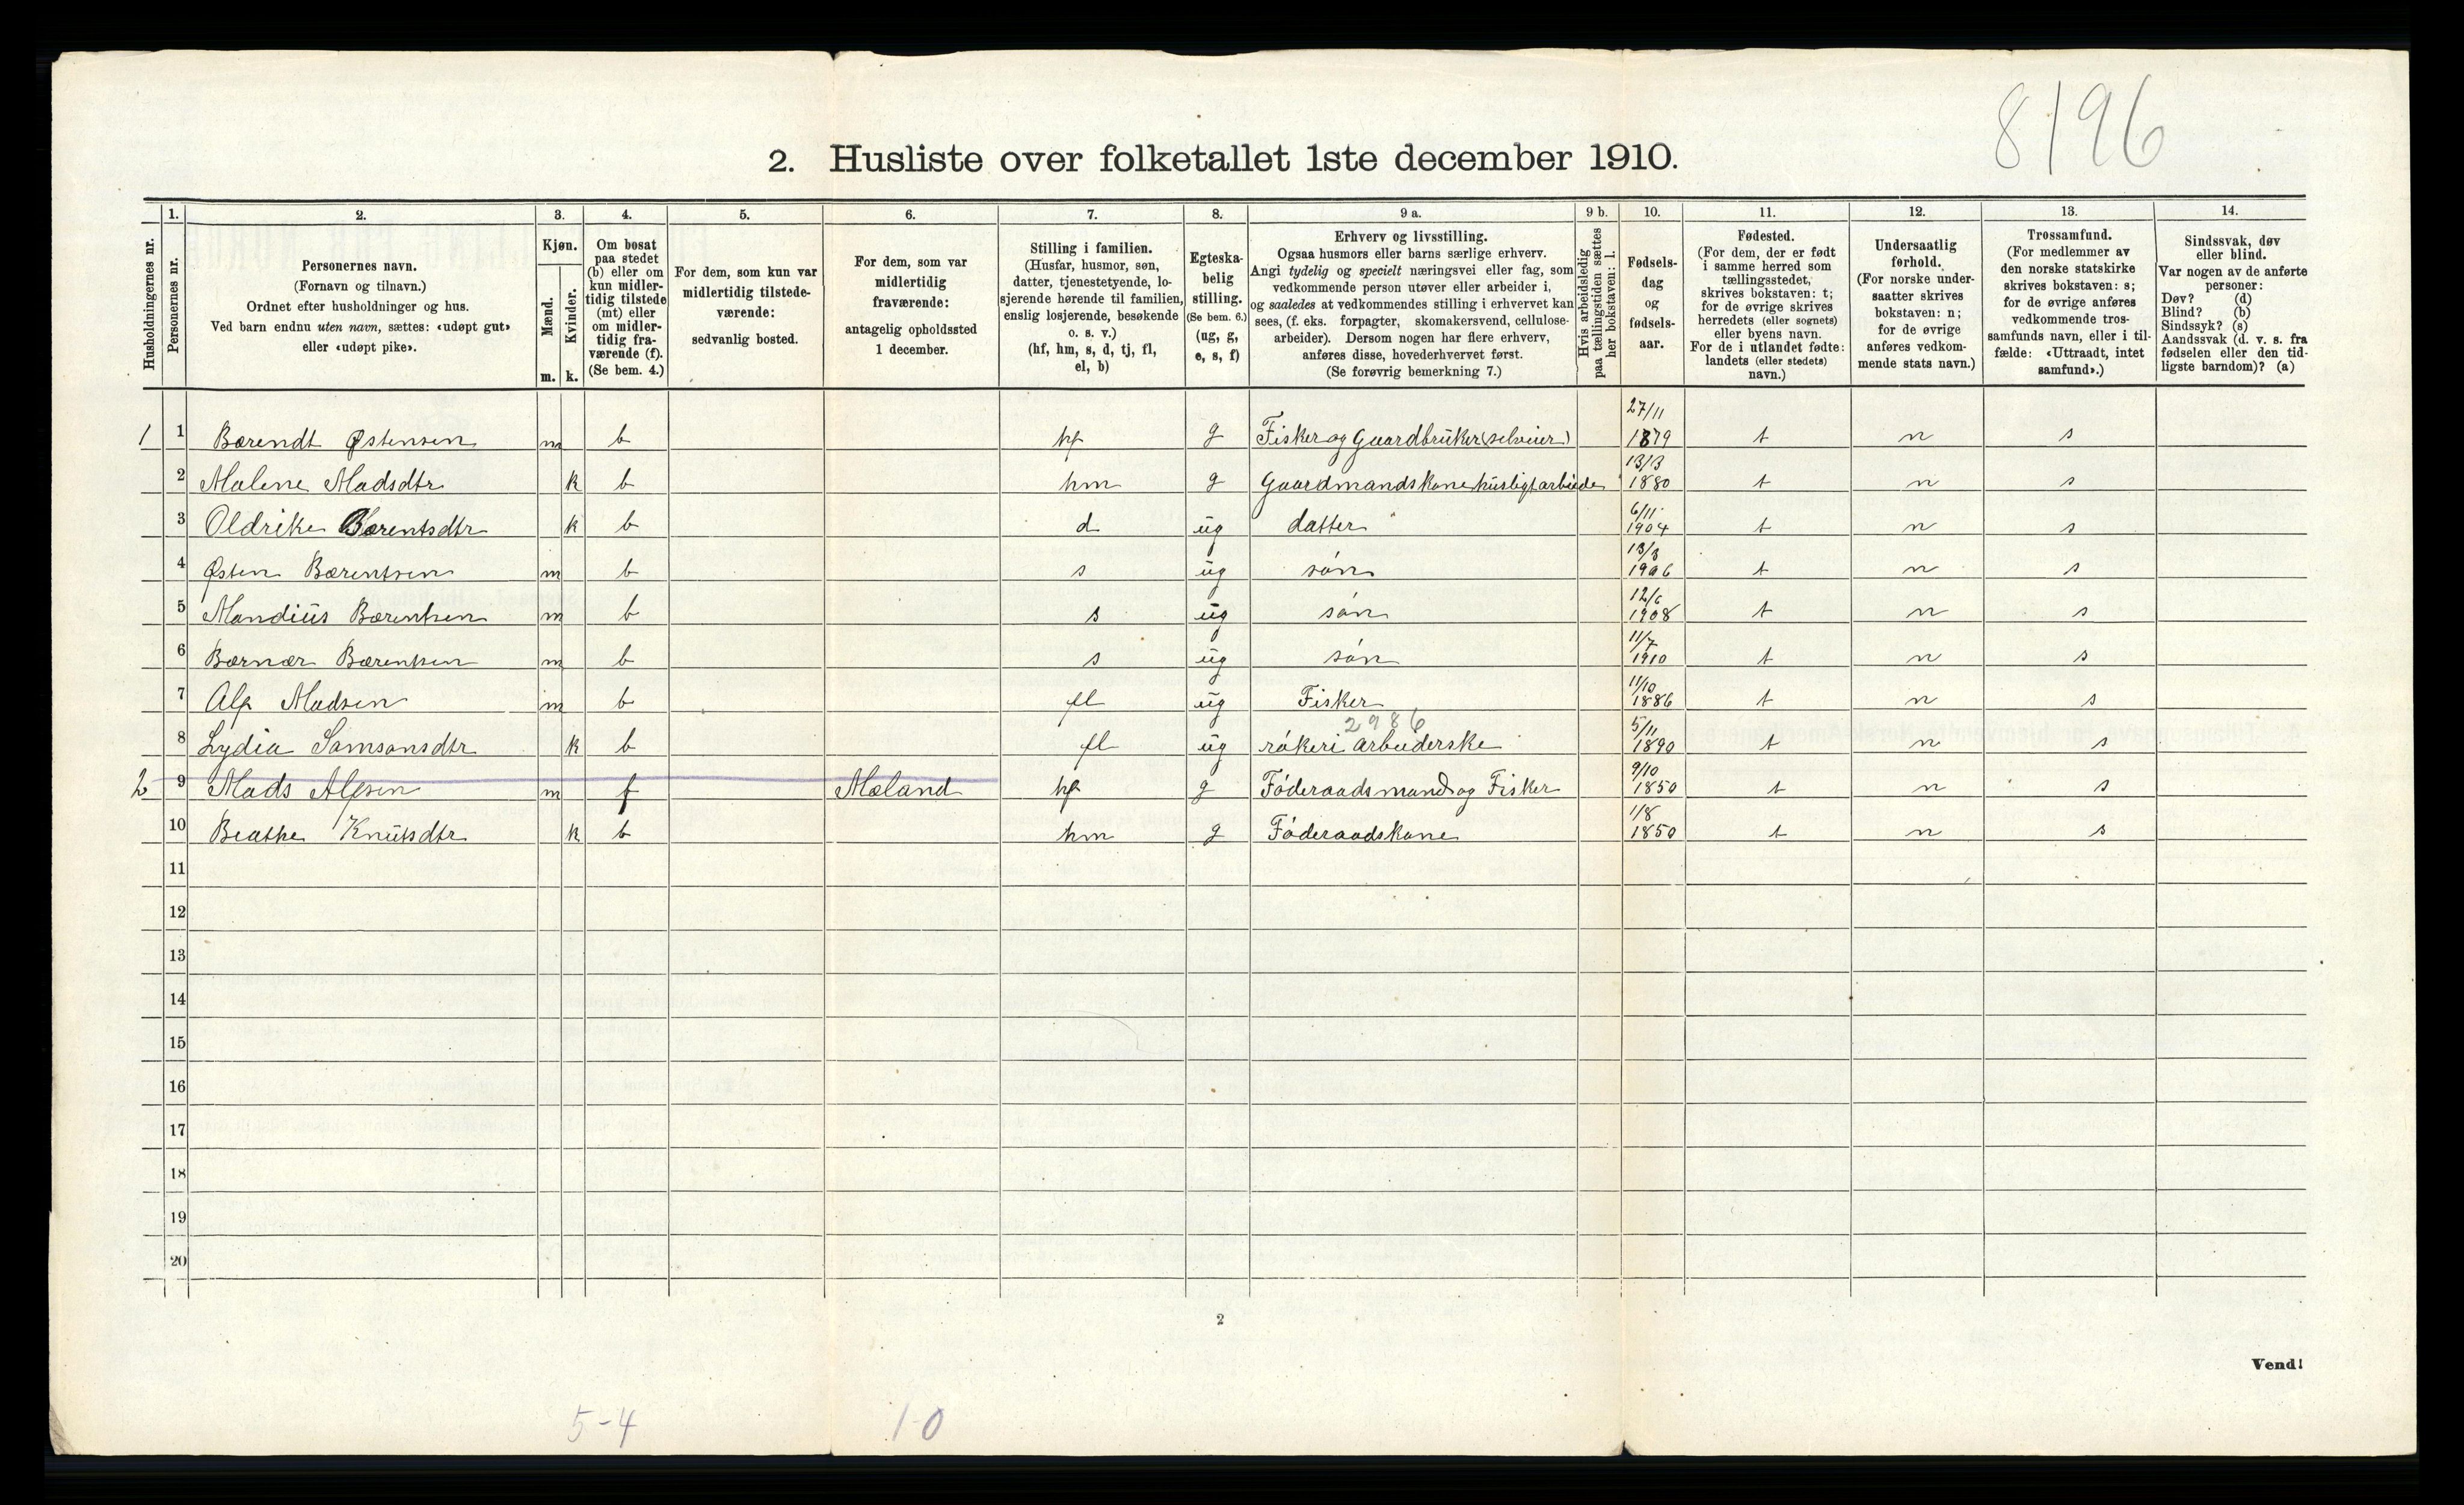 8196
2. Husliste over folketallet 1ste december 1910.
Husholdningernes nr.
1. Personernes nr.
2. Personernes navn.
(Fornavn og tilnavn.)
Ordnet efter husholdninger og hus.
Ved barn endnu uten navn, sættes: «udøpt gut»
eller «udøpt pike».
3. Kjøn.
Mænd. m.
Kvinder. k.
4. Om bosat
paa stedet
(b) eller om
kun midler-
tidig tilstede
(mt) eller
om midler-
tidig fra-
værende (f).
(Se bem. 4.)
5. For dem, som kun var
midlertidig tilstede-
værende:
sedvanlig bosted.
6. For dem, som var
midlertidig
fraværende:
antagelig opholdssted
1 december.
7. Stilling i familien.
(Husfar, husmor, søn,
datter, tjenestetyende, lo-
sjerende hørende til familien,
enslig losjerende, besøkende
o. s. v.)
(hf, hm, s, d, tj, fl,
el, b)
8. Egteska-
belig
stilling.
(Se bem. 6.)
(ug, g,
e, s, f)
9 a. Erhverv og livsstilling.
Ogsaa husmors eller barns særlige erhverv.
Angi tydelig og specielt næringsvei eller fag, som
vedkommende person utøver eller arbeider i,
og saaledes at vedkommendes stilling i erhvervet kan
sees, (f. eks. forpagter, skomakersvend, cellulose-
arbeider). Dersom nogen har flere erhverv,
anføres disse, hovederhvervet først.
(Se forøvrig bemerkning 7.)
9 b. Hvis arbeidsledig
paa tællingstiden sættes
her bokstaven: l.
10. Fødsels-
dag
og
fødsels-
aar.
11. Fødested.
(For dem, der er født
i samme herred som
tællingsstedet,
skrives bokstaven: t;
for de øvrige skrives
herredets (eller sognets)
eller byens navn.
For de i utlandet fødte:
landets (eller stedets)
navn.)
12. Undersaatlig
forhold.
(For norske under-
saatter skrives
bokstaven: n;
for de øvrige
anføres vedkom-
mende stats navn.)
13. Trossamfund.
(For medlemmer av
den norske statskirke
skrives bokstaven: s;
for de øvrige anføres
vedkommende tros-
samfunds navn, eller i til-
fælde: «Uttraadt, intet
samfund».)
14. Sindssvak, døv
eller blind.
Var nogen av de anførte
personer:
Døv? (d)
Blind? (b)
Sindssyk? (s)
Aandssvak (d. v. s. fra
fødselen eller den tid-
ligste barndom)? (a)
1 1 Bærendt Østensen m b hf g Fisker og Gaardbruker (selveier) 27/11 1879 t n s
2 Malene Madsdtr k b hm g Gaardmandskone husligt arbeide 13/3 1880 t n s
3 Oldrike Bærentsdtr k b d ug datter 6/11 1904 t n s
4 Østen Bærentsen m b s ug søn 13/3 1906 t n s
5 Mandius Bærentsen m b s ug søn 12/6 1908 t n s
6 Bærnær Bærentsen m b s ug søn 11/7 1910 t n s
7 Alf Madsen m b fl ug Fisker 11/10 1886 t n s
2986
8 Lydia Samsonsdtr k b fl ug røkeri arbeiderske 5/11 1890 t n s
2 9 Mads Alfsen m f Mæland hf g Føderaadsmand og Fisker 9/10 1850 t n s
10 Beathe Knutsdtr k b hm g Føderaadskone 1/8 1850 t n s
11
12
13
14
15
16
17
18
19
20
2
Vend!
5-4 1 0